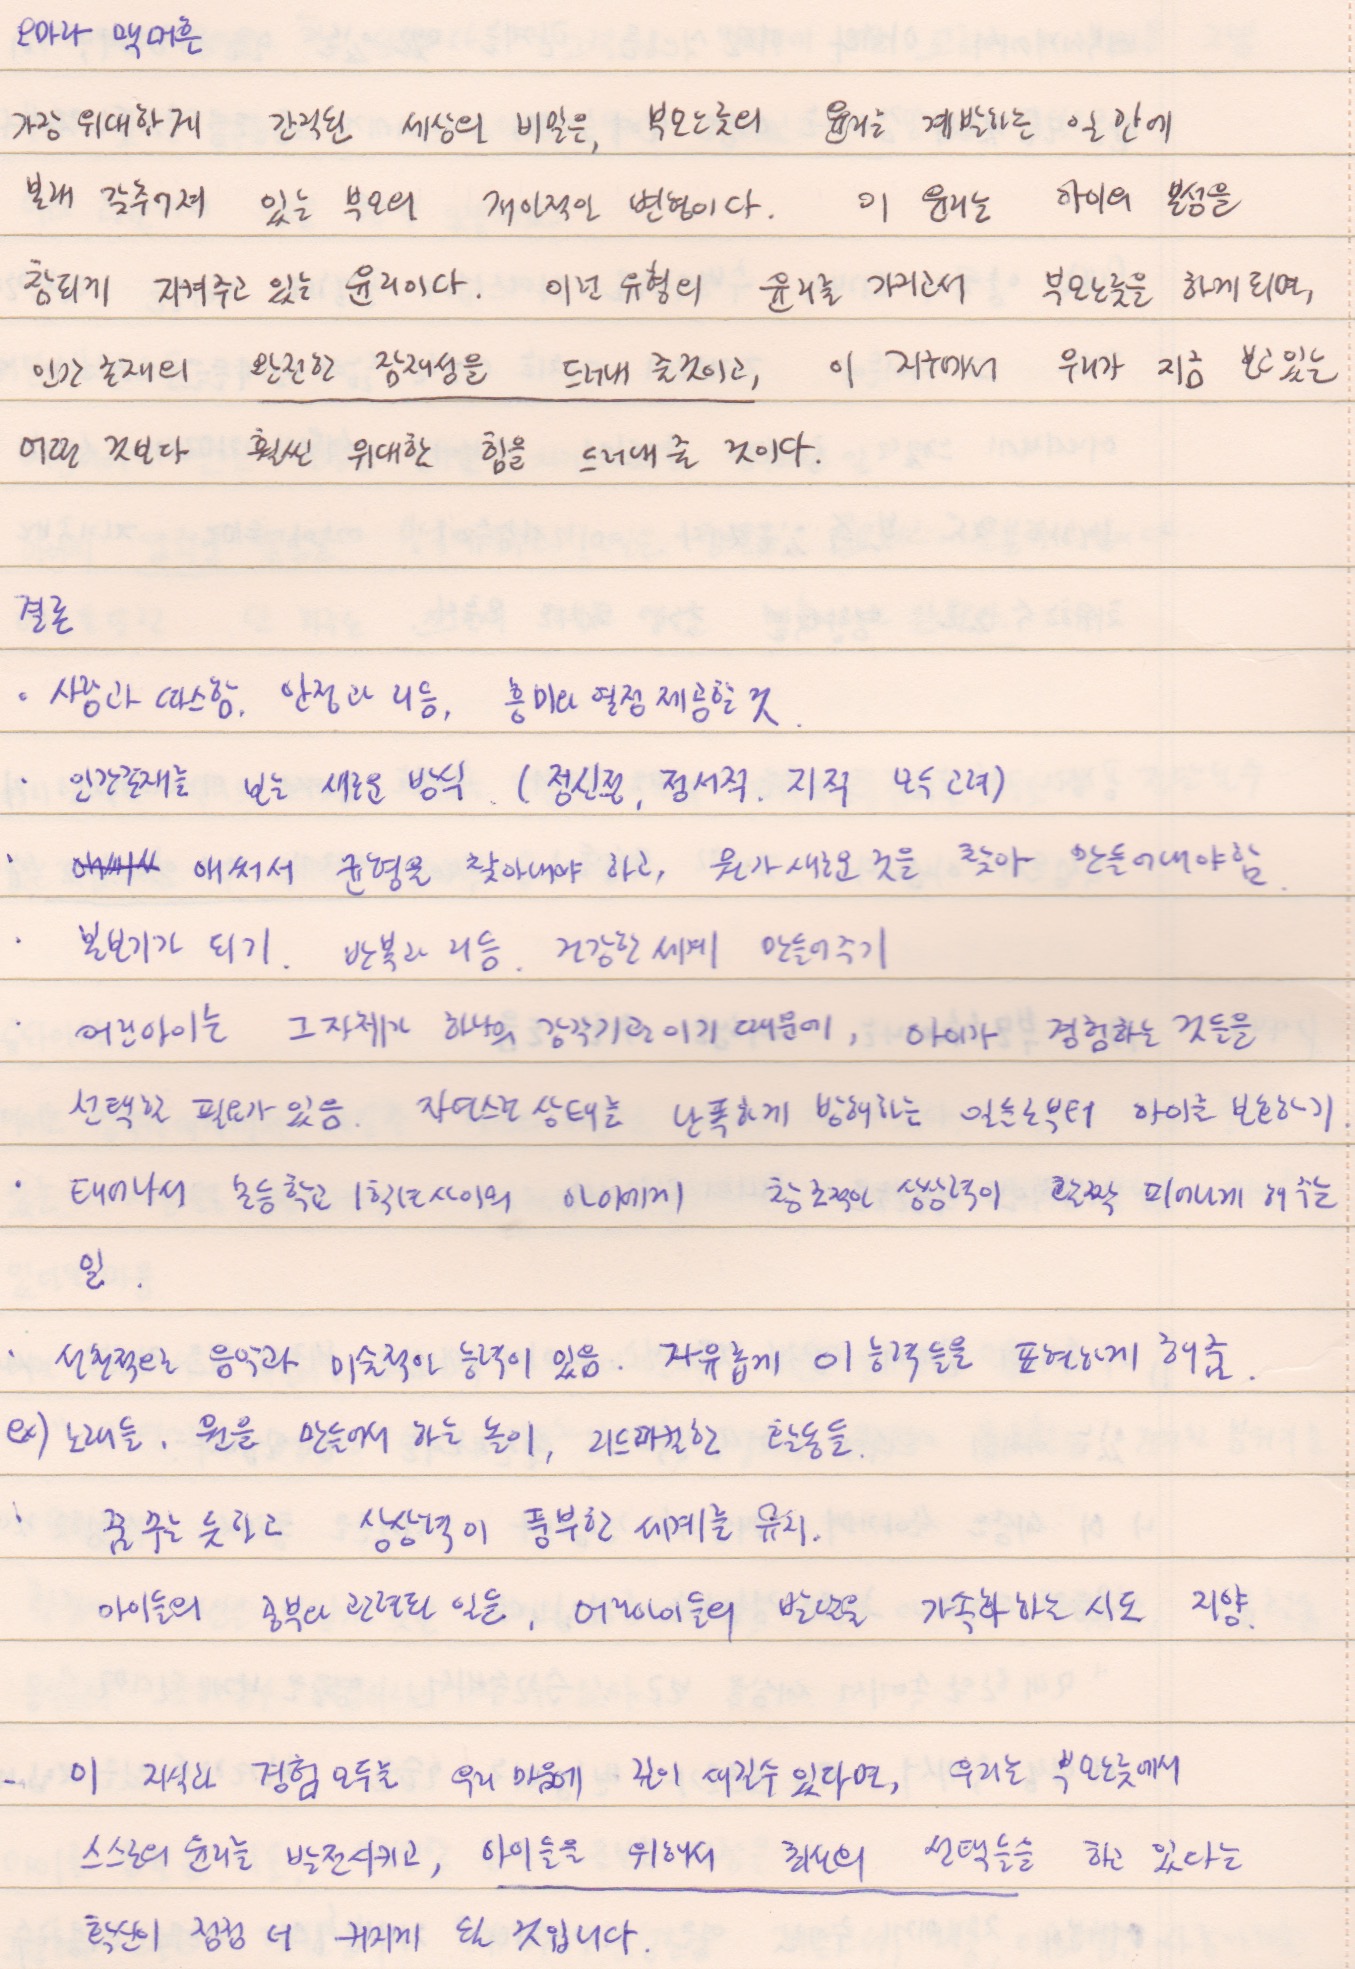 오마라 맥머흔
가장 위대하게 간직된 세상의 비밀은, 부모노릇의 윤리를 계발하는 일 안에
본래 갖추어져 있는 부모의 개인적인 변형이다. 이 윤리는 아이의 본성을
참되게 지켜주고 있는 윤리이다. 이런 유형의 윤리를 가지고서 부모노릇을 하게되면,
인간 존재의 완전한 잠재성을 드러내 줄것이고, 이 지구에서 우리가 지금 보고있는
어떤 것보다 훨씬 위대한 힘을 드러내 줄 것이다.
결론
· 사랑과 따스함, 안정과 리듬, 흥미와 열정 제공할 것.
· 인간존재를 보는 새로운 방식. (정신적, 정서적, 지적 모두 고려)
· 애써서 균형을 찾아내야 하고, 뭔가 새로운 것을 찾아 만들어내야함.
· 본보기가 되기. 반복과 리듬. 건강한 세계 만들어주기
· 어린아이는 그 자체가 하나의 감각기관이기 때문에, 아이가 경험하는 것들을
선택할 필요가 있음. 자연스런 상태를 난폭하게 방해하는 일들로부터 아이를 보호하기.
· 태어나서 초등학교 1학년 사이의 아이에게 창조적인 상상력이 활짝 피어나게 해주는
일.
· 선천적으로 음악과 미술적인 능력이 있음. 자유롭게 이 능력들을 표현하게 해줌.
ex) 노래들, 원을 만들어서 하는 놀이, 리드미컬한 활동들.
· 꿈꾸는 듯하고 상상력이 풍부한 세계를 유지.
아이들의 공부와 관련된 일들, 어린아이들의 발달을 가속화 하는 시도 지양.
· 이 지식과 경험 모두를 우리 마음에 깊이 새길수 있다면, 우리는 부모노릇에서
스스로의 윤리를 발전시키고, 아이들을 위해서 최선의 선택들을 하고 있다는
확신이 점점 더 커지게 될 것입니다.